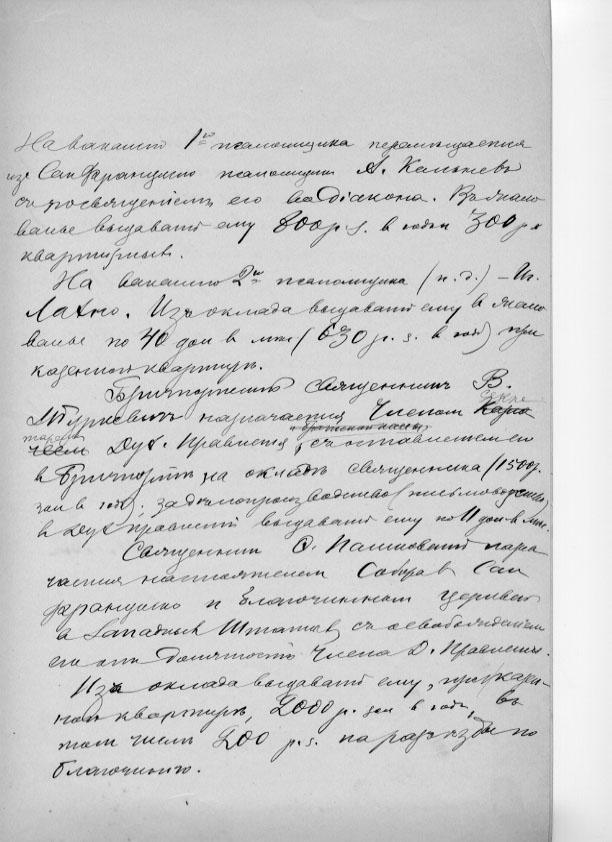 На вакансію 1го псаломщика перемѣщается
изъ Санъ Франциско псаломщикъ А. Кальневъ
съ посвященіемъ его во діакона. Въ жало
ванье выдавать ему 800 р. з. въ годъ и 300 р. з
квартирныхъ.
На вакансію 2го псаломщика (и. д.) – Иг.
Лахно. Изъ оклада выдавать ему въ жало
ванье по 40 дол въ мѣс ( р. з. въ годъ) при
казенной квартирѣ.
Бриджпортскій священникъ В.
Туркевичъ назначается Членомъ
Секре
и братской кассы
таремъ Дух. Правленія, съ оставленіемъ его
въ Бриджпортѣ на окладѣ священника (1500 р.
зол въ годъ); за дѣлопроизводство (письмоводство)
въ Дух правленіи выдавать ему по 11 дол въ мѣс.
Священникъ Ѳ. Пашковскій назна
чается настоятелемъ Собора въ Сан
Франциско и благочиннымъ церквей
въ Западныхъ Штатахъ, съ освобожденіемъ
его отъ должности Члена Д. Правленія.
Изъ оклада выдавать ему, при казен
ной квартирѣ, 2000 р. зол въ годъ, въ
томъ числѣ 200 р. з. на разъѣзды по
благочинію.